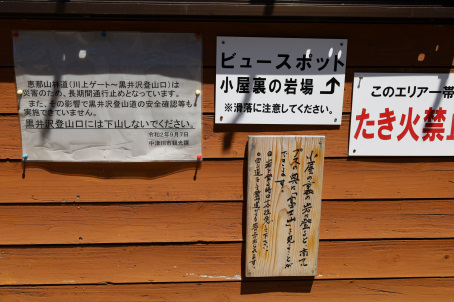 恵那山林道(川上ゲート〜黒井沢登山口)は
災害のため、長期間通行止めとなっています。
また、その影響で黒井沢登山道の安全確認等も
実施できていません。
黒井沢登山口には下山しないでください。
令和2年9月7日
中津川市観光課
ビュースポット
小屋裏の岩場
※滑落に注意してください。
このエリア一帯
たき火禁止
小屋の裏の岩に登ると南ア
プスの奥に「富士山」を見ることが
できます。